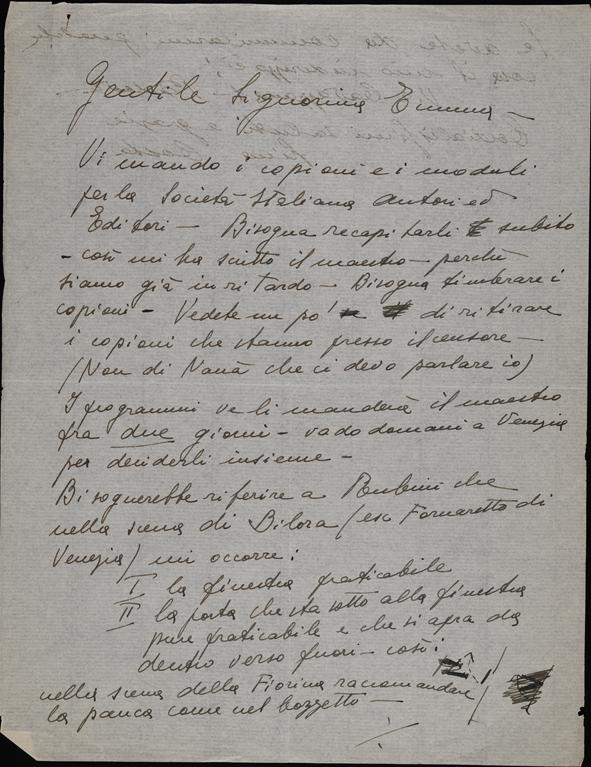 Gentile Signorina Emma —
Vi mando i copioni e i moduli
per la Società Italiana Autori ed
Editori — Bisogna recapitarli subito
- così mi ha scritto il maestro - perchè
siamo già in ritardo — Bisogna timbrare i
copioni — Vedete un pò' di ritirare
i copioni che stanno presso il censore —
(Non di Nanà che ci devo parlare io)
I programmi ve li manderà il maestro
fra due giorni - vado domani a Venezia
per deciderli insieme —
Bisognerebbe riferire a che
nella scena di Bilora (ex Fornaretto di
Venezia) mi occorre:
I la finestra praticabile
II la porta che sta sotto alla finestra
pure praticabile e che si apra da
dentro verso fuori - così:
nella scena della Fiorina raccomandare
la panca come nel bozzetto —